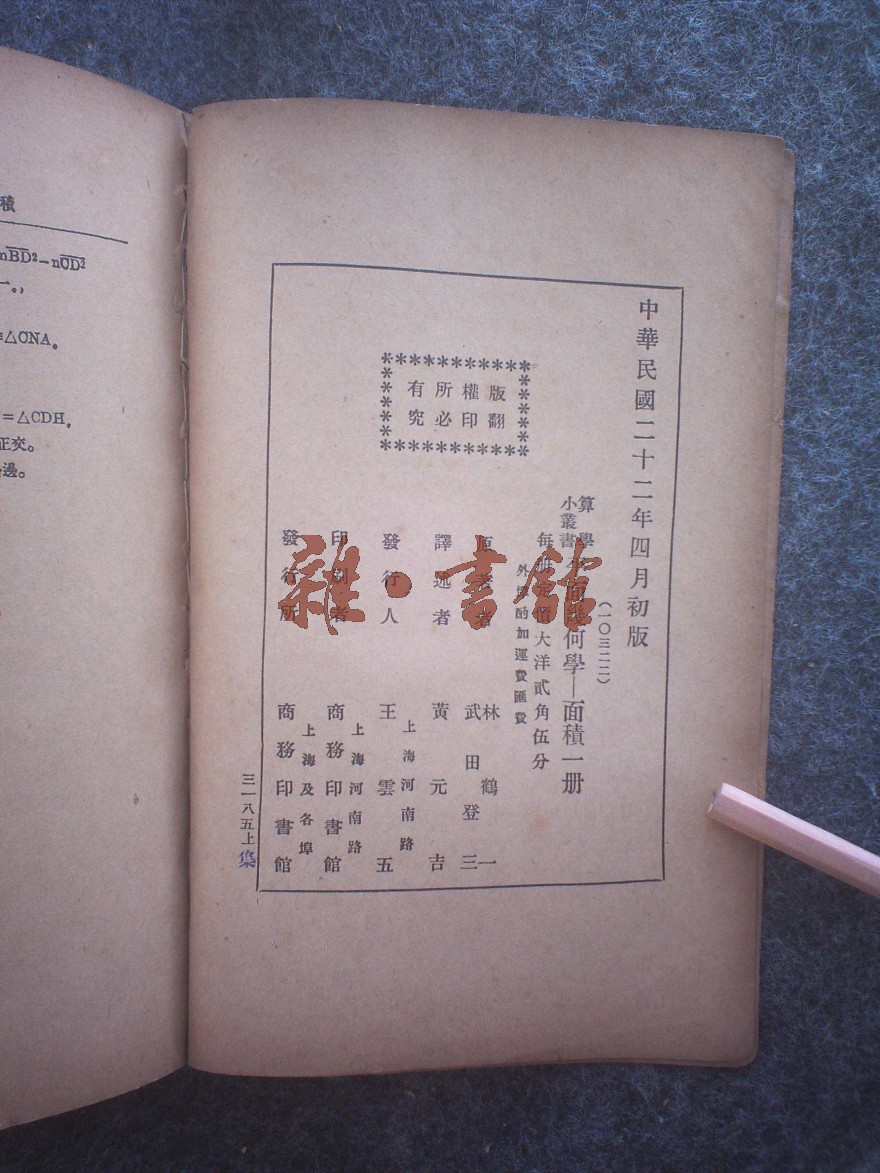 積
nBD²−nCD²
=△CNA。
=△CDH。
正交。
邊。
中華民國二十二年四月初版
(一〇三二二)
算學
小叢書
平面幾何學—面積一册
每册定價大洋貳角伍分
外埠酌加運費匯費
版權所有
翻印必究
原著者
林鶴一
武田登三
譯述者 黃元吉
發行人 王雲五
上海河南路
印刷者 商務印書館
上海河南路
發行所 商務印書館
上海及各埠
三一八五上
集
雜·書館